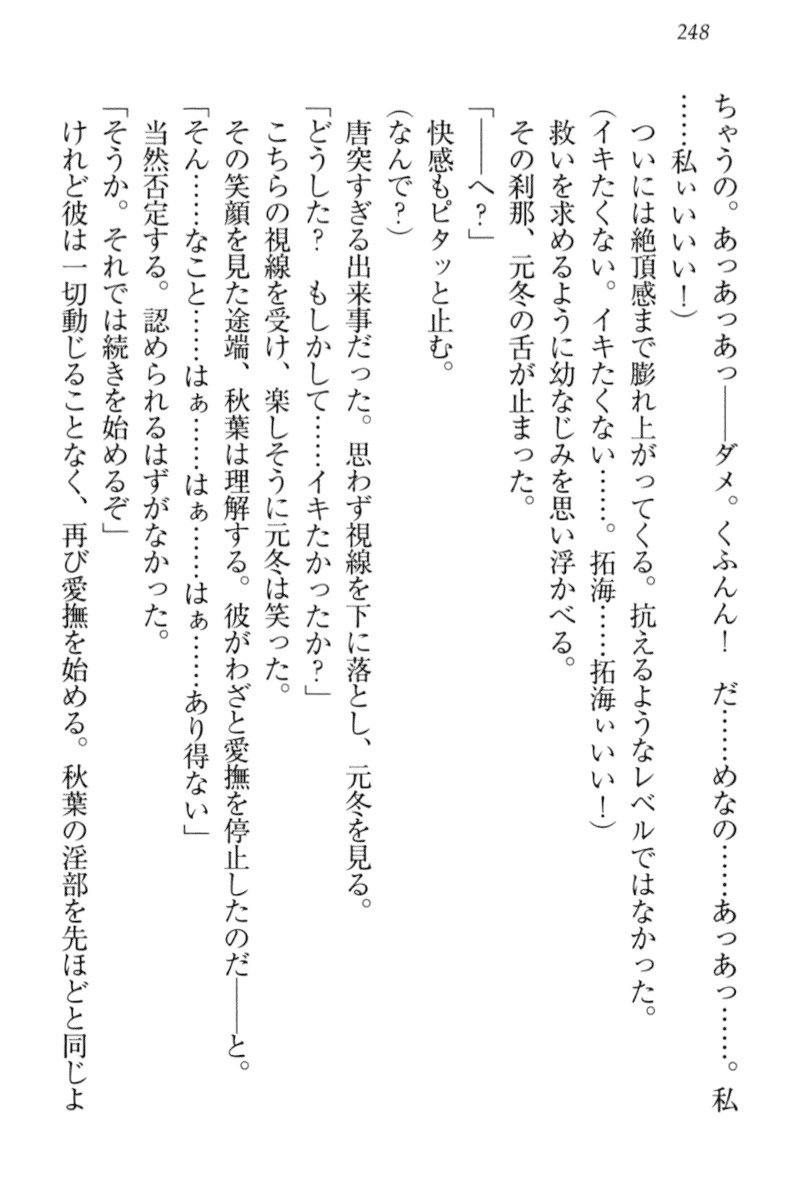 248
ちゃうの。あっあっあっ――ダメ。くふんん！　だ……めなの……あっあっ……。私
……私ぃいいい！）
　ついには絶頂感まで膨れ上がってくる。抗えるようなレベルではなかった。
（イキたくない。イキたくない……。拓海……拓海ぃいい！）
　救いを求めるように幼なじみを思い浮かべる。
　その刹那、元冬の舌が止まった。
「――へ？」
　快感もピタッと止む。
（なんで？）
　唐突すぎる出来事だった。思わず視線を下に落とし、元冬を見る。
「どうした？　もしかして……イキたかったか？」
　こちらの視線を受け、楽しそうに元冬は笑った。
　その笑顔を見た途端、秋葉は理解する。彼がわざと愛撫を停止したのだ――と。
「そん……なこと……はぁ……はぁ……はぁ……あり得ない」
　当然否定する。認められるはずがなかった。
「そうか。それでは続きを始めるぞ」
　けれど彼は一切動じることなく、再び愛撫を始める。秋葉の淫部を先ほどと同じよ